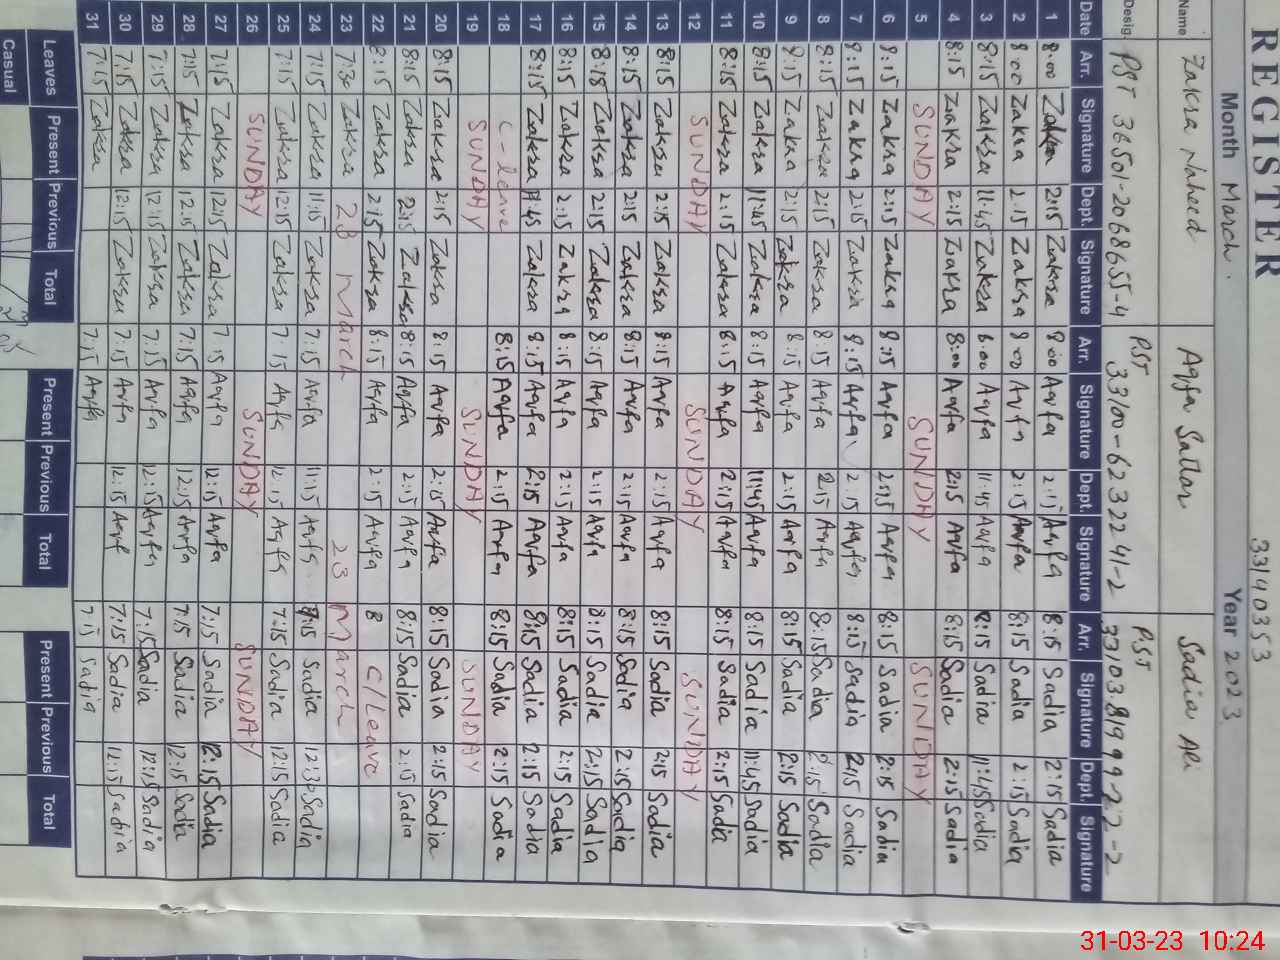 REGISTER
33140353
Month March. Year 2023
Name Zakra Naheed Aqfa Sattar Sadia Ali
Desig. PST 36501-2068655-4 PST 33100-6232241-2 PST
Date Arr. Signature Dept. Signature Arr. Signature Dept. Signature Arr. Signature Dept. Signature
1 8:00 Zakra 2:15 Zakra 8:00 Aqfa 2:15 Aqfa 8:15 Sadia 2:15 Sadia
2 8:00 Zakra 2:15 Zakra 8:00 Aqfa 2:15 Aqfa 8:15 Sadia 2:15 Sadia
3 8:15 Zakra 11:45 Zakra 8:00 Aqfa 11:45 Aqfa 8:15 Sadia 11:45 Sadia
4 8:15 Zakra 2:15 Zakra 8:00 Aqfa 2:15 Aqfa 8:15 Sadia 2:15 Sadia
5 SUNDAY SUNDAY SUNDAY
6 8:15 Zakra 2:15 Zakra 8:15 Aqfa 2:15 Aqfa 8:15 Sadia 2:15 Sadia
7 8:15 Zakra 2:15 Zakra 8:15 Aqfa 2:15 Aqfa 8:15 Sadia 2:15 Sadia
8 8:15 Zakra 2:15 Zakra 8:15 Aqfa 2:15 Aqfa 8:15 Sadia 2:15 Sadia
9 8:15 Zakra 2:15 Zakra 8:15 Aqfa 2:15 Aqfa 8:15 Sadia 2:15 Sadia
10 8:15 Zakra 11:45 Zakra 8:15 Aqfa 11:45 Aqfa 8:15 Sadia 11:45 Sadia
11 8:15 Zakra 2:15 Zakra 8:15 Aqfa 2:15 Aqfa 8:15 Sadia 2:15 Sadia
12 SUNDAY SUNDAY SUNDAY
13 8:15 Zakra 2:15 Zakra 8:15 Aqfa 2:15 Aqfa 8:15 Sadia 2:15 Sadia
14 8:15 Zakra 2:15 Zakra 8:15 Aqfa 2:15 Aqfa 8:15 Sadia 2:15 Sadia
15 8:15 Zakra 2:15 Zakra 8:15 Aqfa 2:15 Aqfa 8:15 Sadia 2:15 Sadia
16 8:15 Zakra 2:15 Zakra 8:15 Aqfa 2:15 Aqfa 8:15 Sadia 2:15 Sadia
17 8:15 Zakra 11:45 Zakra 8:15 Aqfa 2:15 Aqfa 8:15 Sadia 2:15 Sadia
18 C-leave 8:15 Aqfa 2:15 Aqfa 8:15 Sadia 2:15 Sadia
19 SUNDAY SUNDAY SUNDAY
20 8:15 Zakra 2:15 Zakra 8:15 Aqfa 2:15 Aqfa 8:15 Sadia 2:15 Sadia
21 8:15 Zakra 2:15 Zakra 8:15 Aqfa 2:15 Aqfa 8:15 Sadia 2:15 Sadia
22 8:15 Zakra 2:15 Zakra 8:15 Aqfa 2:15 Aqfa 8 C/Leave
23 7:30 Zakra 23 March 23 March
24 7:15 Zakra 11:15 Zakra 7:15 Aqfa 11:15 Aqfa 7:15 Sadia 12:30 Sadia
25 7:15 Zakra 12:15 Zakra 7:15 Aqfa 12:15 Aqfa 7:15 Sadia 12:15 Sadia
26 SUNDAY SUNDAY SUNDAY
27 7:15 Zakra 12:15 Zakra 7:15 Aqfa 12:15 Aqfa 7:15 Sadia 12:15 Sadia
28 7:15 Zakra 12:15 Zakra 7:15 Aqfa 12:15 Aqfa 7:15 Sadia 12:15 Sadia
29 7:15 Zakra 12:15 Zakra 7:15 Aqfa 12:15 Aqfa 7:15 Sadia 12:15 Sadia
30 7:15 Zakra 12:15 Zakra 7:15 Aqfa 12:15 Aqf 7:15 Sadia 12:15 Sadia
31 7:15 Zakra 7:15 Aqfa 7:15 Sadia
Leaves Present Previous Total Present Previous Total Present Previous Total
Casual
31-03-23 10:24